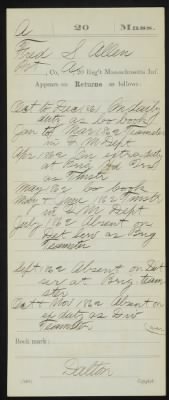 A 20 Mass.
Fred S. Allen
Pvt, Co. A, 20 Reg't Massachusetts Inf.
Appears on Returns as follows:
Oct to Dec 1861 On daily
duty as Co book
Jan to Mar 1862 Teamster
in Q M Dept
Apr 1862 On extra duty
at Brig Hd Qrs
as Teamstr
May 1862 Co book
May & June 1862 Teamstr.
in Q M Dept
July 1862 Absent on
Det serv as Brig
Teamster
Sept 1862 Absent on Det
ser at Brig team
ster
Oct & Nov 1862 Absent on
ex duty as Div
Teamster
Book mark:
Dalton
Copyist.